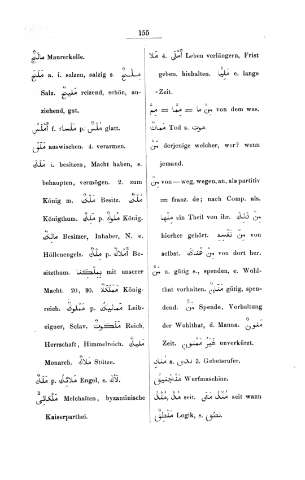 155
مالج Maurerkelle.
ملح a. i. salzen, salzig s. مليح
Salz. مليح reizend, schön, an-
ziehend, gut.
أملس f. ملساء p. ملس glatt.
ملص auswischen. 4. verarmen.
ملك i. besitzen, Macht haben, s.
behaupten, vermögen. 2. zum
König m. ملك Besitz. ملك
Königthum. ملك p. ملوك König.
مالك Besitzer, Inhaber, N. e.
Höllenengels. ملك p. أملاك Be-
sitzthum. بملكنا mit unserer
Macht. 20, 90. مملكة König-
reich. مملوك p. مماليك Leib-
eigner, Sclav. ملكوت Reich,
Herrschaft, Himmelreich. مليك
Monarch. ملاك Stütze.
ملك p. ملائكة Engel, s. لأك.
ملكائى Melchaiten, byzantinische
Kaiserparthei.
ملا 4. أملى Leben verlängern, Frist
geben, hinhalten. مليا e. lange
Zeit.
مما = من ما = مما von dem was.
ممات Tod s. موت
من derjenige welcher, wer? wenn
jemand.
من von — weg, wegen, an, als partitiv
= franz. de; nach Comp. als.
منها ein Theil von ihr. من هنا
hierher gehört. من نفسه von
selbst. من هناك von dort her.
من u. gütig s., spenden, e. Wohl-
that vorhalten. منان gütig, spen-
dend. من Spende, Vorhaltung
der Wohlthat, d. Manna. منون
Zeit. غير ممنون unverkürzt.
منادى s. ندى 3. Gebetsrufer.
منجنيق Wurfmaschine.
منذ, مذ seit. منذ متى seit wann
منطق Logik, s. نطق.